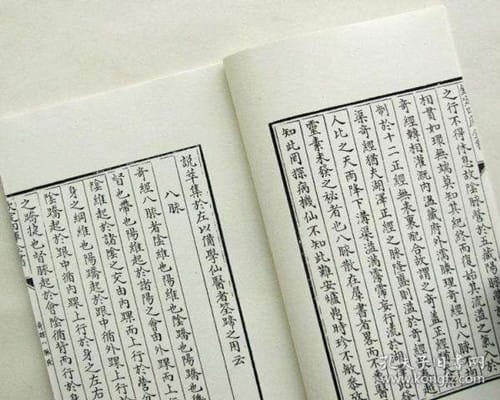 之行不得休息故陰脈營於五藏陽脈營
相貫如環無端莫知其紀終而復始其流溢之
奇經轉相灌溉內溫藏府外濡腠理奇經凡八脈
制於十二正經無表裏配合故謂之奇蓋正經
渠奇經猶夫湖澤正經之脈隆盛則溢於奇經
人比之天雨降下溝渠溢滿霶霈妄行流於湖
靈素未發之秘者也八脈散在羣書者略而不
知此罔探病機仙不知此難安爐鼎時珍不敏參攷
說萃集於左以備學仙醫者筌蹄之用云
八脈
奇經八脈者陰維也陽維也陰蹻也陽蹻也
督也帶也陽維起於諸陽之會由外踝而
陰維起於諸陰之交由內踝而上行於營分
身之綱維也陽蹻起於跟中循外踝上行於
陰蹻起於跟中循內踝上行於身之左右
之蹻捷也督脈起於會陰循背而行於
孔夫子旧书网
www.kongfz.com